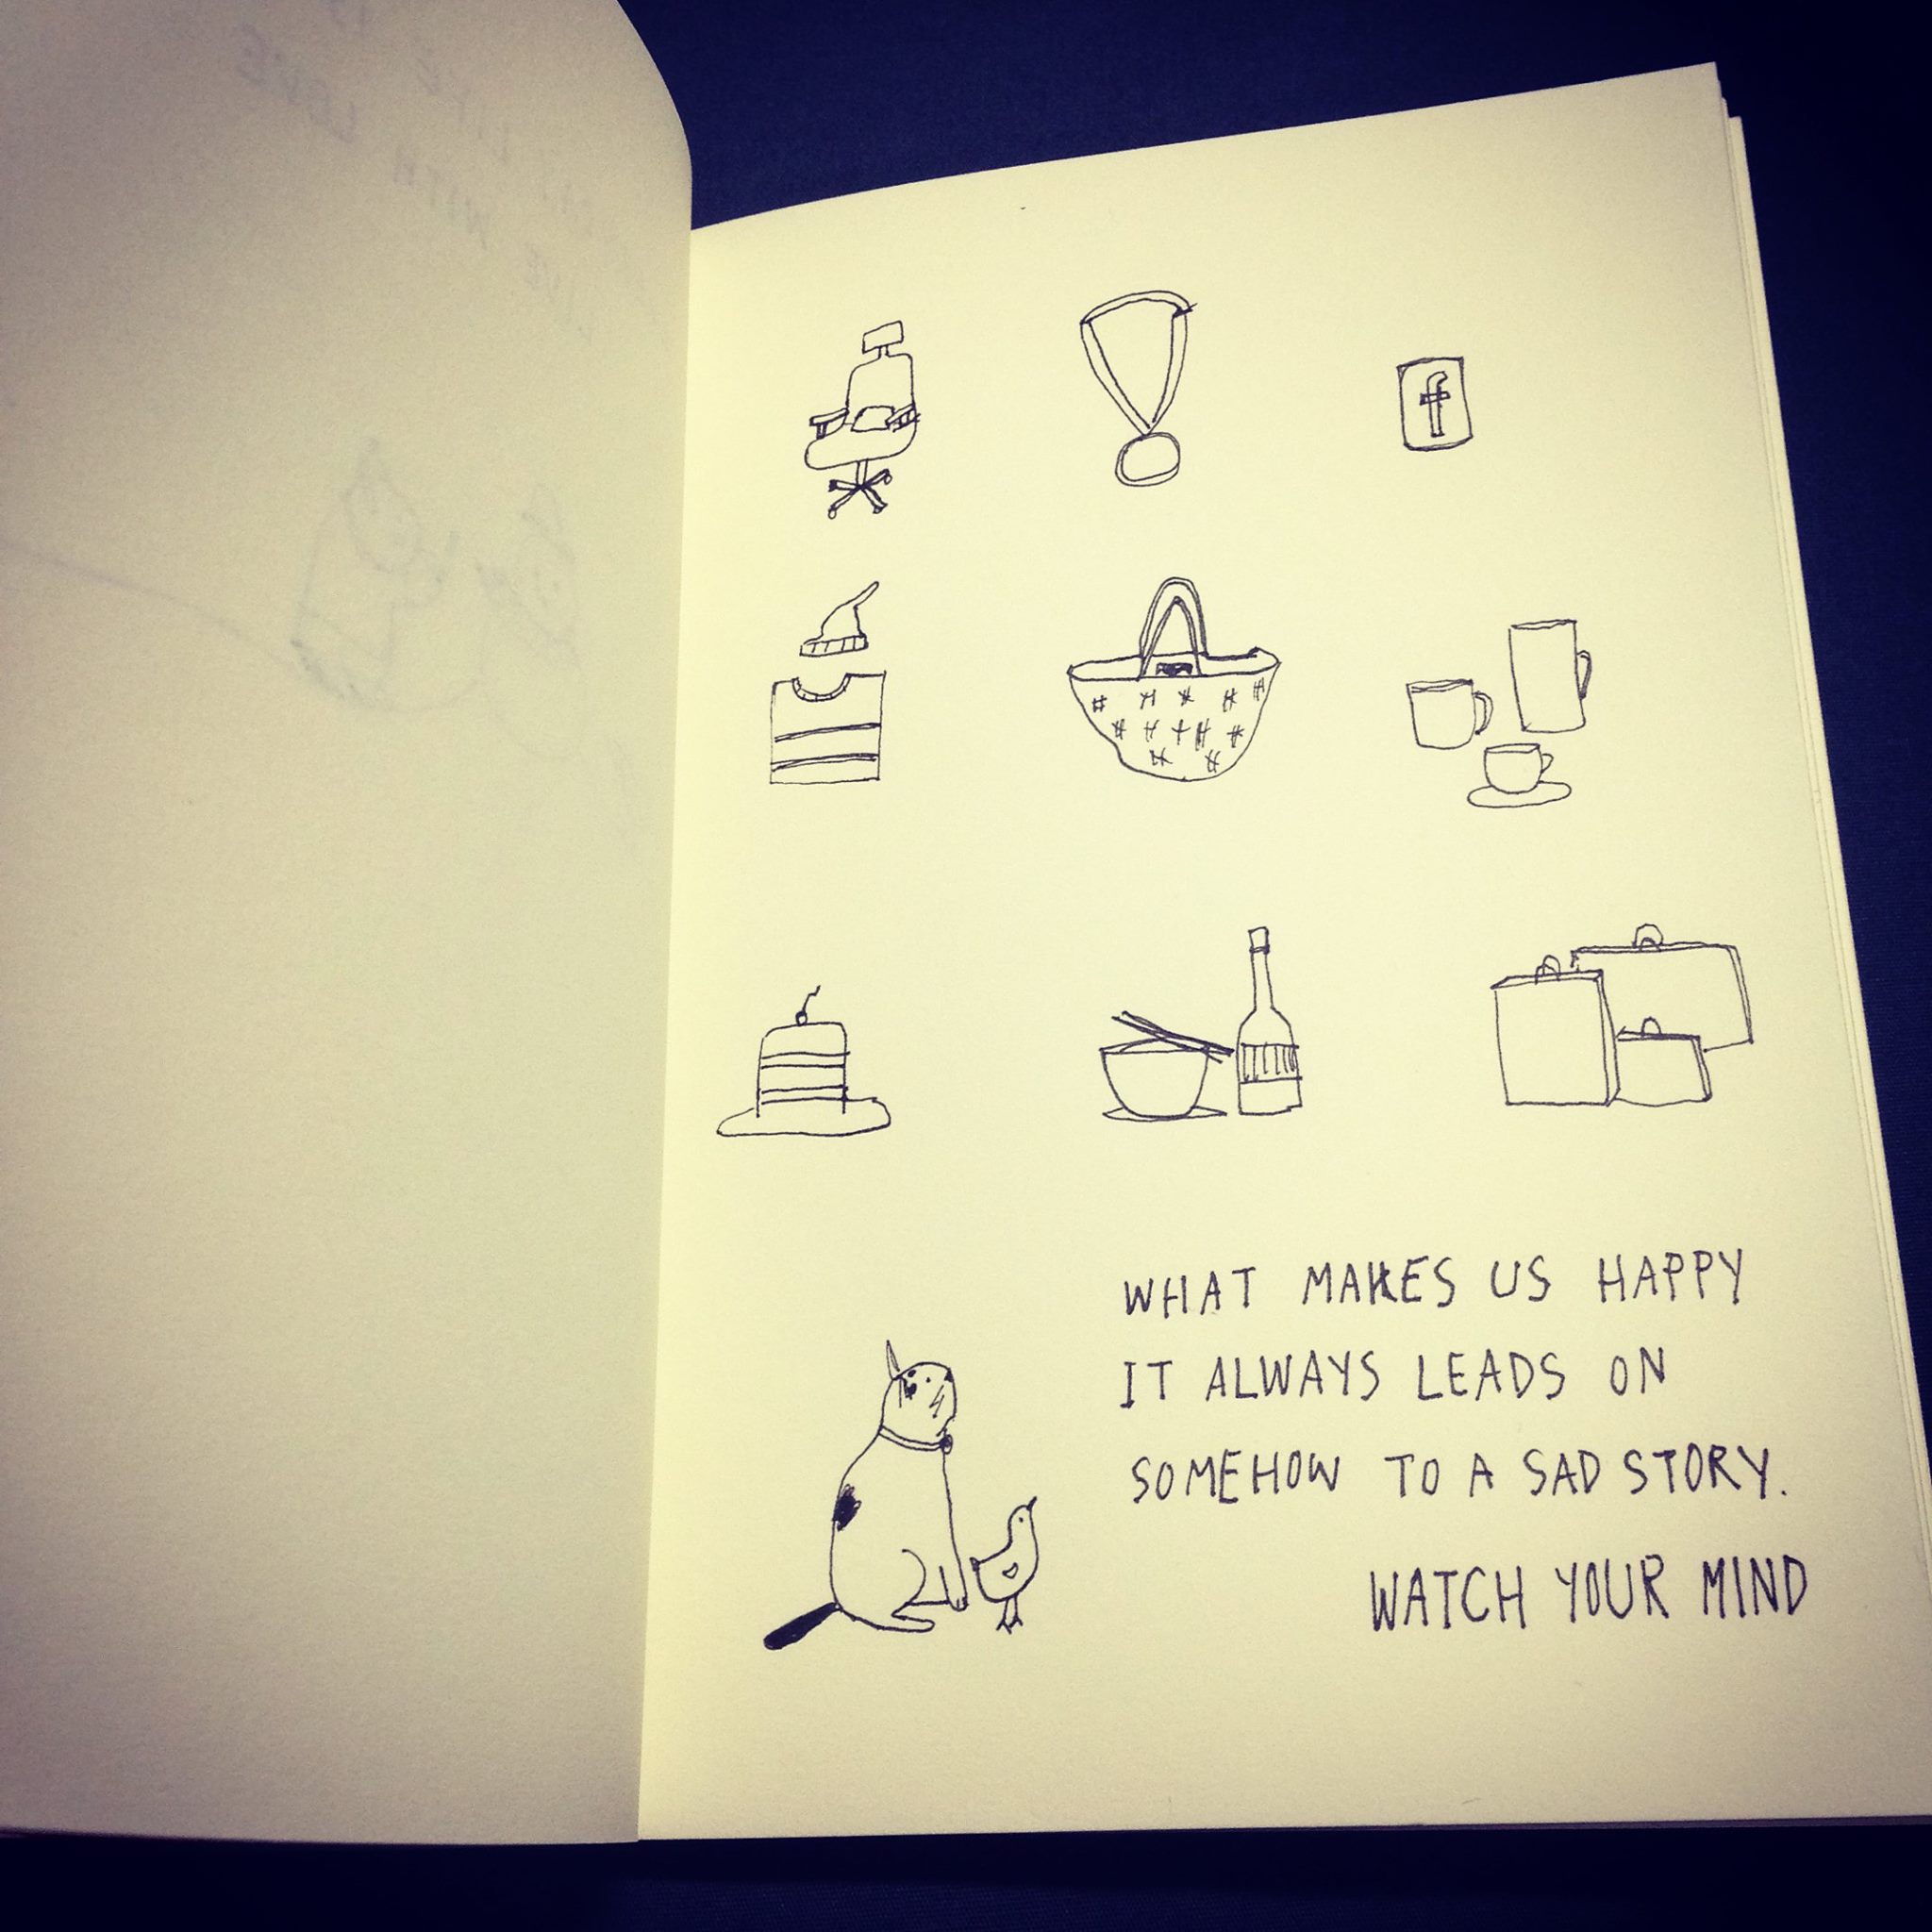 f
WHAT MAKES US HAPPY
IT ALWAYS LEADS ON
SOMEHOW TO A SAD STORY.
WATCH YOUR MIND
LIVE WITH LOVE